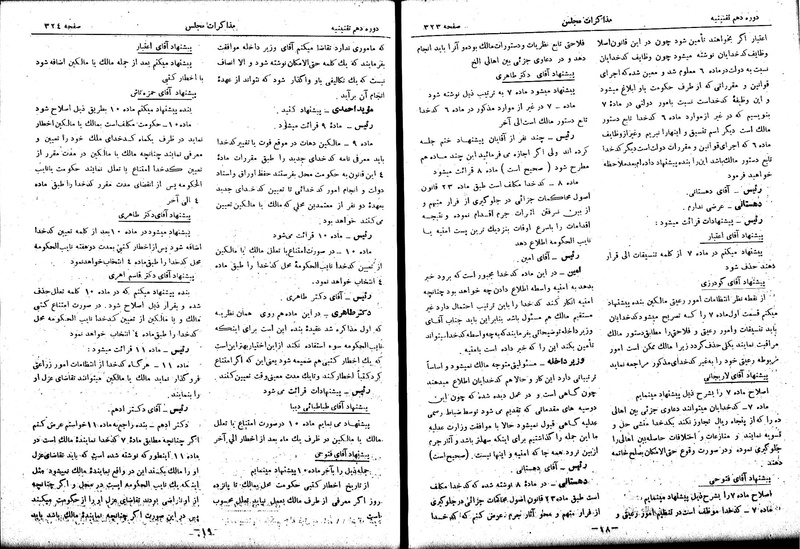 دوره دهم تقنینیه
مذاکرات مجلس
صفحه ۳۲۳
اعتبار اگر بخواهند تأمین شود چون در این قانون اصلا
وظایف کدخدایان نوشته میشود چون وظایف کدخدایان
نسبت به دولت در ماده ۶ معلوم شد و معین شده که اجرای
قوانین و مقرراتی که از طرف حکومت باو ابلاغ میشود
و این وظیفه کدخداست نسبت بامور دولتی در مادهٔ ۷
بنویسیم که در غیر از موارد ماده ۶ کدخدا تابع دستور
مالك است دیگر اسم تفتیق و اینها را نبریم
ماده ۶ که اجرای قوانین و مقررات دولت است دیگر کدخدا
تابع دستور مالك باشد این را بنده پیشنهاد داده‌ام بعد ملاحظه
خواهید فرمود
رئیس ـ آقای دهستانی.
دهستانی ـ عرضی ندارم.
رئیس ـ پیشنهادات قرائت میشود:
پیشنهاد آقای اعتبار
پیشنهاد میکنم در ماده ۷ از کلمه تنسیقات الی قرار
دهند حذف شود
پیشنهاد آقای گودرزی
از نقطه نظر انتظامات امور رعیتی مالکین بنده پیشنهاد
میکنم قسمت اول ماده ۷ را که تصریح میشود کدخدایان
باید تنسیقات و امور رعیتی و فلاحتی را مطابق دستور مالك
مراقبت نمایند بکلی حذف گردد زیرا مالك ممکن است امور
مربوطه رعیتی خود را به غیر کدخدای مذکور مراجعه نماید
پیشنهاد آقای لاریجانی
اصلاح ماده ۷ را بشرح ذیل پیشنهاد مینمایم
ماده ۷ ـ کدخدایان میتوانند دعاوی جزئی بین اهالی
ده را که از پنجاه ریال تجاوز نکند بکدخدا منشی حل و
تسویه نمایند و منازعات و اختلافات حاصله بین اهالی را
جلوگیری نموده و در صورت وقوع حتی الامکان بصلح خاتمه
دهند
پیشنهاد آقای فتوحی
اصلاح ماده ۷ را بشرح ذیل پیشنهاد مینمایم:
ماده ۷ ـ کدخدا موظف است در تنظیم امور رعیتی و
فلاحتی تابع نظریات و دستورات مالك بوده و آنرا باید انجام
دهد و در دعاوی جزئی بین اهالی الخ
پیشنهاد آقای دکتر طاهری
پیشنهاد میشود ماده ۷ به ترتیب ذیل نوشته شود
ماده ـ ۷ در غیر از موارد مذکور در ماده ۶ کدخدا
تابع دستور مالك است الی آخر
رئیس ـ چند نفر از آقایان پیشنهاد ختم جلسه
کرده اند ولی اگر اجازه می فرمائید این چند ماده هم
مطرح شود ( صحیح است ) ماده ۸ قرائت میشود
ماده ۸ ـ کدخدا مکلف است طبق ماده ۲۳ قانون
اصول محاکمات جزائی در جلوگیری از فرار متهم و
از بین نرفتن اثرات جرم اقدام نموده و نتیجه
اقدامات را باسرع اوقات بنزدیك ترین پست امنیه یا
نایب الحکومه اطلاع دهد
رئیس ـ آقای امین.
امین ـ در این ماده کدخدا مجبور است که برود خبر
بدهد به امنیه و واسطه اطلاع دادن چه خواهد بود چنانچه
امنیه انکار کند کدخدا را باین ترتیب احتمال دارد خبر
مستقیم مالك هم مسئول باشد بنابراین باید جناب آقای
وزیر داخله توضیحاتی بفرمایند که به چه واسطه کدخدا میتواند
تأمین بکند این را که خبر داده است بامنیه.
وزیر داخله ـ مسئولیتی متوجه مالك نمیشود و اساساً
ترتیباتی دارد این کار و حالا هم کدخدایان اطلاع میدهند
چون گاهی است و در عمل دیده شده که چون این
دوسیه های مقدماتی که تقدیم می شود توسط ضباط رسمی
عدلیه گاهی قبول نمیشود حالا با موافقت وزارت عدلیه
ما این جمله را گذاشتیم برای اینکه سهلتر باشد و آثار جرم
از بین نرود همه جا که امنیه و اینها نیست. (صحیح است)
رئیس ـ آقای دهستانی.
دهستانی ـ در مادهٔ ۸ نوشته شده که کدخدا مکلف
است طبق ماده ۲۳ قانون اصول محاکمات جزائی در جلوگیری
از فرار متهم و محو آثار جرم. عرض کنم که کدخدا
ـ۱۸ـ
دوره دهم تقنینیه
مذاکرات مجلس
صفحه ۳۲۴
که ماموری ندارد تقاضا میکنم آقای وزیر داخله موافقت
بفرمایند که یك کلمه حتی الامکان نوشته شود و الا انصاف
نیست که یك تکالیفی باو واگذار شود که نتواند از عهدهٔ
انجام آن برآید.
مؤید احمدی ـ پیشنهاد کنید.
رئیس ـ مادهٔ ۹ قرائت میشود.
ماده ۹ ـ مالکین دهات در موقع فوت یا تغییر کدخدا
باید معرفی نامه کدخدای جدید را طبق مقررات مادهٔ
۴ این قانون به حکومت محل بفرستند حفظ اوراق و اسناد
دولت و انجام امور کدخدائی تا تعیین کدخدای جدید
بعهدهٔ دو نفر از معتمدین محلی که مالك یا مالکین تعیین
می کنند خواهد بود.
رئیس ـ ماده ۱۰ قرائت می شود
ماده ۱۰ ـ در صورت امتناع یا تعلل مالك یا مالکین
از تعیین کدخدا نایب الحکومهٔ محل کدخدا را طبق ماده
۴ انتخاب خواهد نمود.
رئیس ـ آقای دکتر طاهری.
دکتر طاهری ـ در این ماده هم روی همان نظریه
که اول مذاکره شد عقیدهٔ بنده این است برای اینکه
نایب الحکومه سوء استفاده نکند از این اختیار بهتر این است
که یك اخطار کتبی هم ضمیمه شود یعنی این که اگر امتناع
کرد کتباً اخطار کنند و تا یك مدت معینی وقت تعیین کنند.
رئیس ـ پیشنهادات قرائت می شود
پیشنهاد آقای طباطبائی دیبا
پیشنهاد می نمایم ماده ۱۰ ـ در صورت امتناع یا تعلل
مالك یا مالکین در ظرف یك ماه بعد از اخطار الی آخر
پیشنهاد آقای فتوحی
جمله ذیل را بآخر ماده ۱۰ پیشنهاد مینمایم
از تاریخ اخطار کتبی حکومت محل تا پانزده
روز اگر معرفی از طرف مالك بعمل نیاید تعلل محسوب
است.
پیشنهاد آقای اعتبار
پیشنهاد میکنم بعد از جمله مالك یا مالکین اضافه شود
با اخطار کتبی
پیشنهاد آقای حمزه تاش
بنده پیشنهاد میکنم ماده ۱۰ بطریق ذیل اصلاح شود
ماده ۱۰ ـ حکومت مکلف است بمالك یا مالکین اخطار
نماید در ظرف یکماه کدخدای ملك خود را تعیین و
معرفی نمایند چنانچه مالك یا مالکین در مدت مقرر از
تعیین کدخدا امتناع یا تعلل نمایند حکومت یا نایب
الحکومه پس از انقضای مدت مقرر کدخدا را طبق ماده
۴ الی آخر
پیشنهاد آقای دکتر طاهری
پیشنهاد میشود در ماده ۱۰ بعد از کلمه تعیین کدخدا
اضافه شود پس از اخطار کتبی بمدت دو هفته نایب الحکومه
محل کدخدا را طبق ماده ۴ انتخاب خواهد نمود
پیشنهاد آقای دکتر قاسم اهری
بنده پیشنهاد میکنم که در ماده ۱۰ کلمه تعلل حذف
شده و بقرار ذیل اصلاح شود. در صورت امتناع کتبی
مالك و یا مالکین از تعیین کدخدا نایب الحکومه محل
کدخدا را طبق ماده ۴ انتخاب خواهد نمود
رئیس ـ ماده ۱۱ قرائت میشود:
ماده ۱۱ ـ هرگاه کدخدا از انتظامات امور زراعتی
فروگذار نماید مالك یا مالکین میتوانند تقاضای عزل او
را بنمایند.
رئیس ـ آقای دکتر ادهم.
دکتر ادهم ـ بنده راجع به ماده ۱۱ خواستم عرض کنم
اگر چنانچه مطابق مادهٔ ۷ کدخدا نمایندهٔ مالك است در
ماده ۱۱ اینطور که نوشته شده است که باید تقاضای عزل
او را مالك بکند این در واقع نمایندهٔ مالك نمیشود مثل
اینکه یك نایب الحکومه ایست در محل و اگر چنانچه
از او ناراضی بودند تقاضای عزل او را از حکومت میکنند
پس در این صورت اگر چنانچه نمایندهٔ مالك باشد باید
ـ۱۹ـ